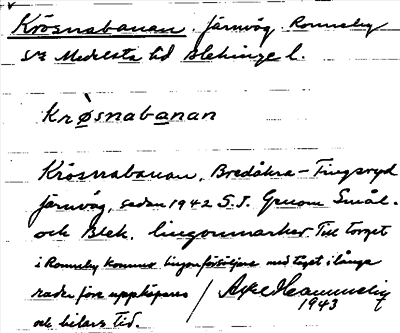 Krösnabanan. järnväg. Ronneby
Medelsta hd Blekinge l.
Krösnabanan
Krösnabanan, Bredåkra – Tingsryd
järnväg, sedan 1942 S.J. Genom Smål.
och Blek. lingonmarker. Till torget
i Ronneby kommo lingonförsäljare med tåget i långa
rader före uppköpares
och bilars tid. / Axel Hammarlug 1943